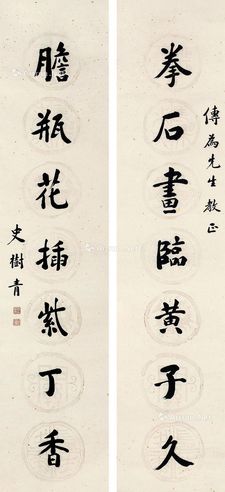 傳為先生教正
拳石畫臨黃子久
膽瓶花插紫丁香
史樹青